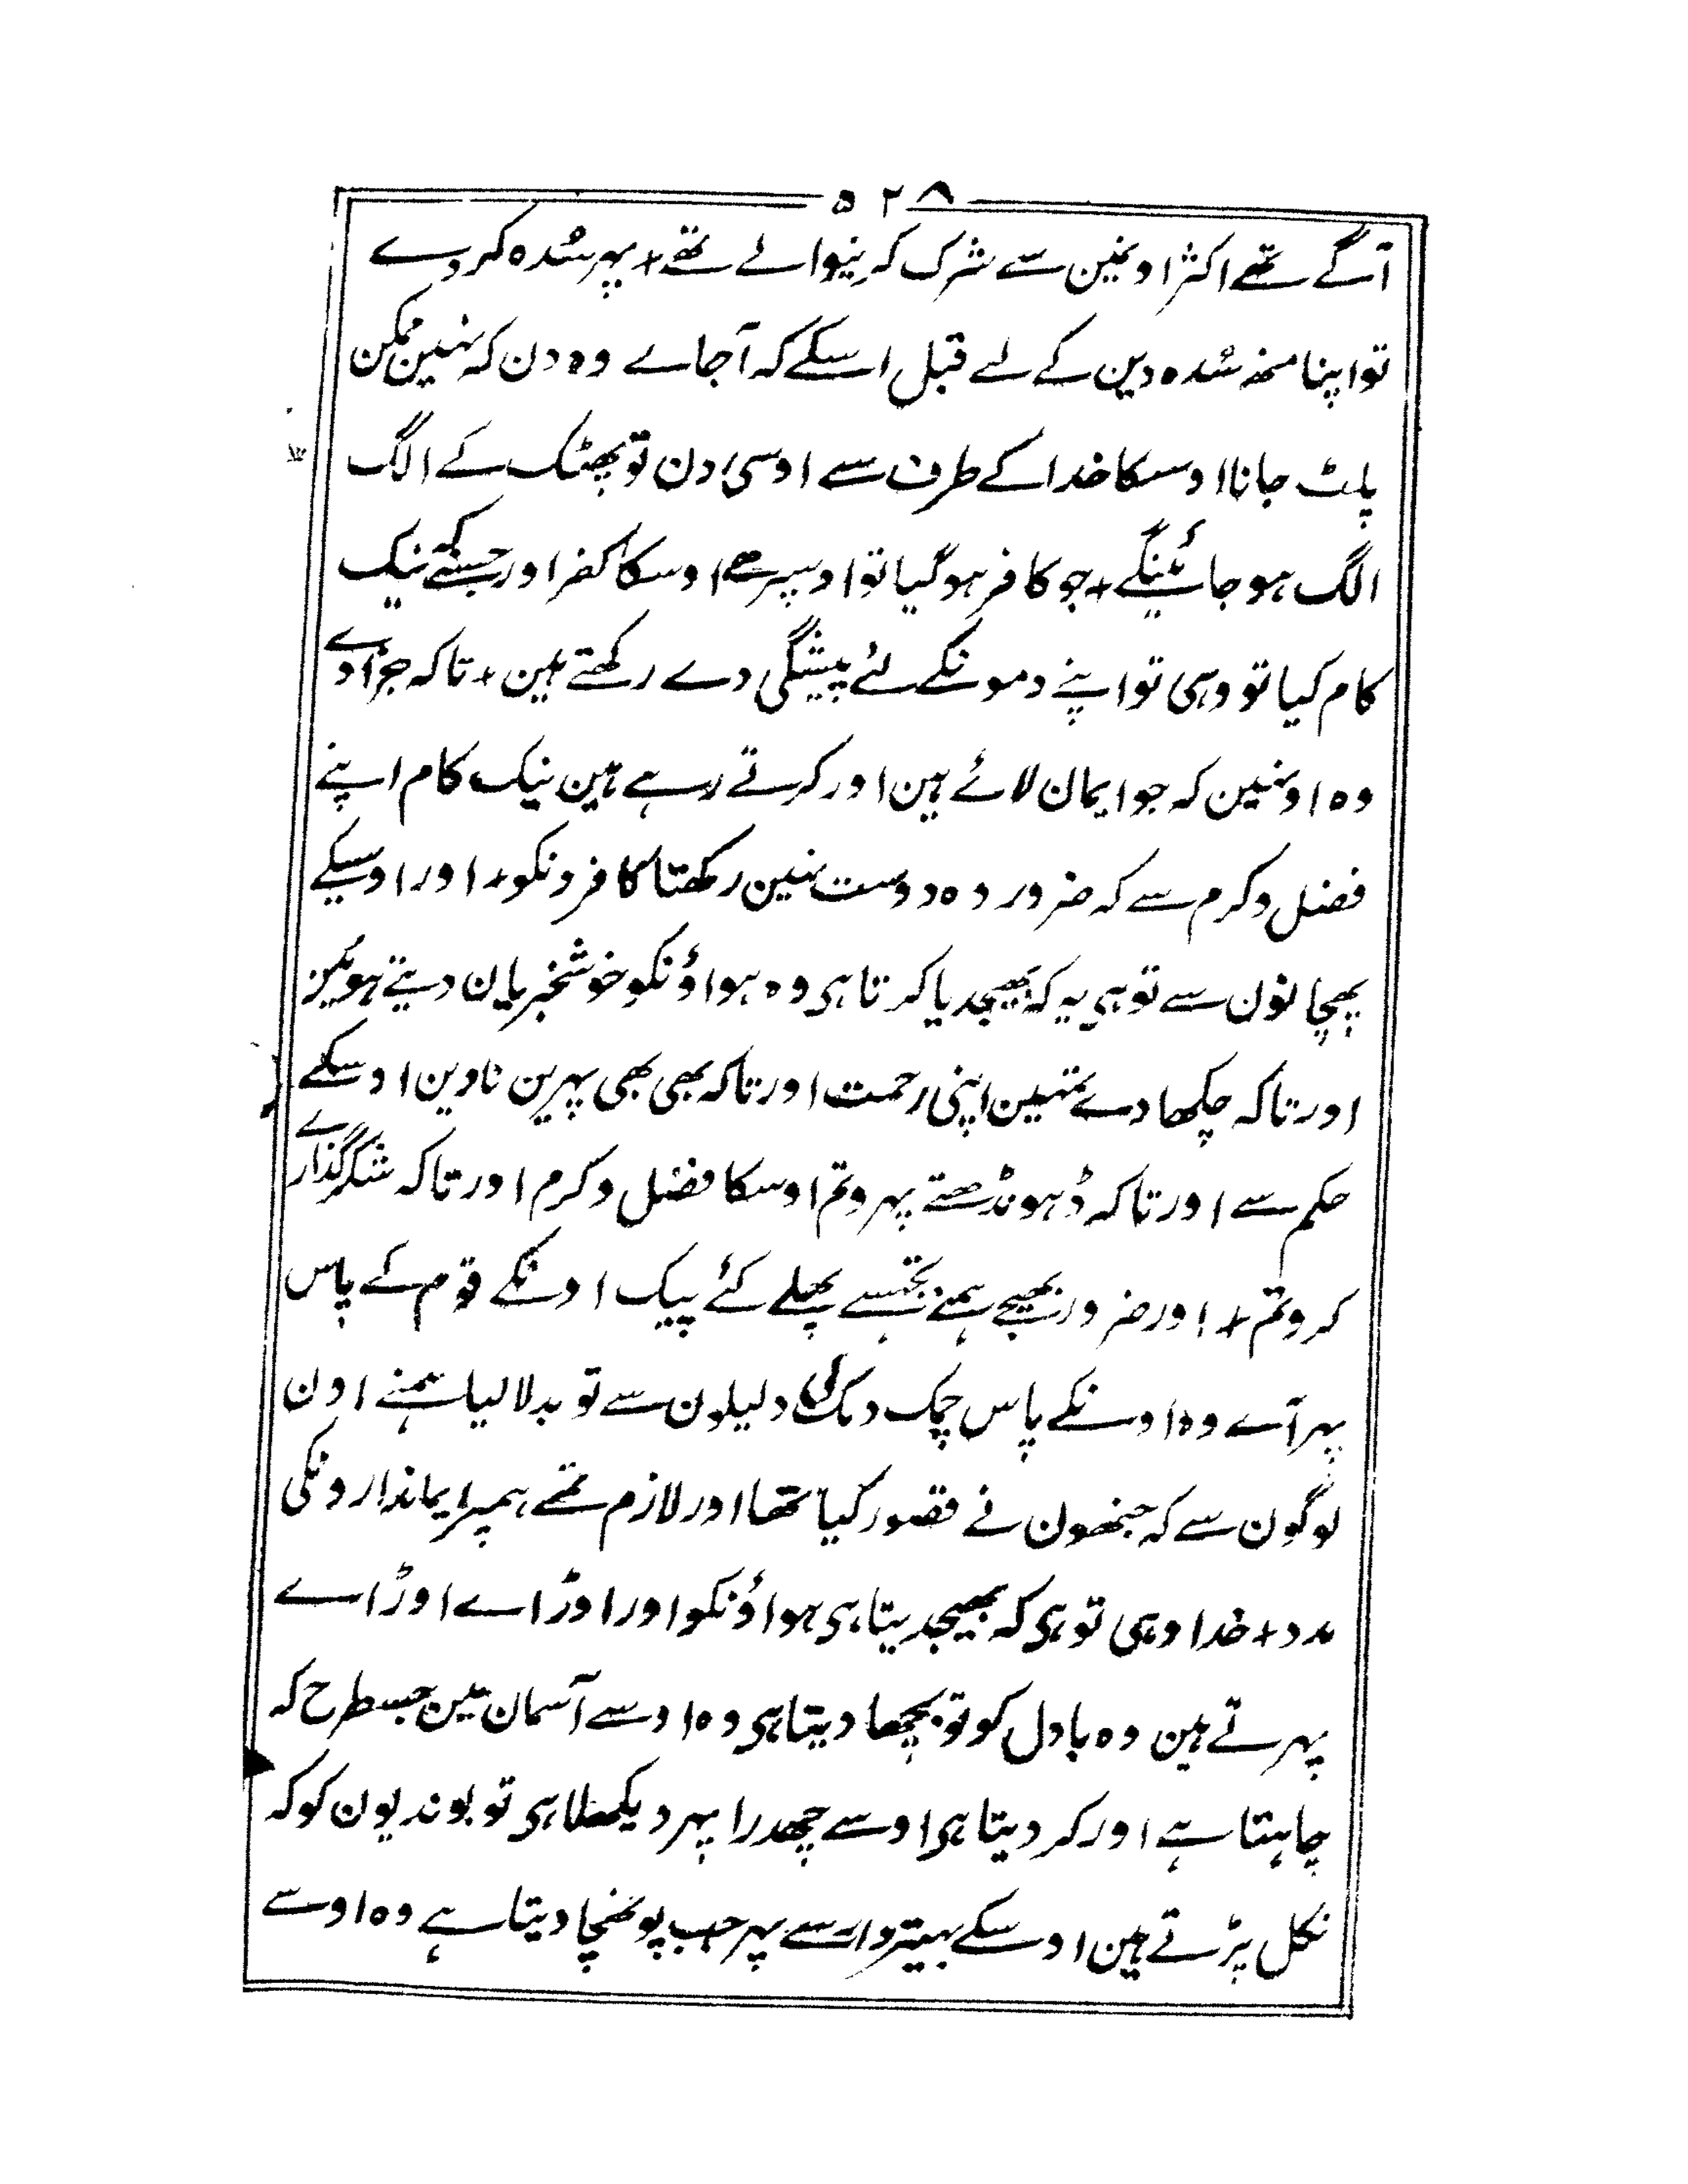 ۵۲۸
آگے تھے اکثر اونہین سے شرک کرنیوالے تھے + پہر سُدہ کردے
تو اپنا منھ سُدہ دین کے لے قبل اسکے کہ آجاے وہ دن کہ نہین ممکن
پلٹ جانا اوسکا خدا کے طرف سے اوسی دن تو پھٹک کے الگ
الگ ہو جائینگے + جو کافر ہوگیا تو اوسپر ھے اوسکا کفر اور جسنے کہ نیک
کام کیا تو وہی تو اپنے دمونکے لئے پیشگی دے رکھتے ہین + تاکہ جزا دے
وہ اونہین کہ جو ایمان لائے ہین اور کرتے رہے ہین نیک کام اپنے
فضل وکرم سے کہ ضرور وہ دوست نہین رکھتا کافرونکو + اور اوسکے
پھچانون سے تو ہی یہ کہ بھیجدیا کرتا ہی وہ ہواؤنکو خوشخبریان دیتے ہوئین
اور تاکہ چکھا دے تمہین اپنی رحمت اور تاکہ بھی بھی پہرین ناوین اوسکے
حکم سے اور تاکہ ڈہونڈھتے پہرو تم اوسکا فضل وکرم اور تاکہ شکرگذارے
کرو تم + اور ضرور بھیجے ہمنے تجھسے پھلے کئے پیک اونکے قوم کے پاس
پہر آے وہ اونکے پاس چمک دمک کی دلیلون سے تو بدلا لیا ہمنے اون
لوگون سے کہ جنھون نے قصور کیا تھا اور لازم تھے ہمپر ایماندارونکی
مدد + خدا وہی تو ہی کہ بھیجدیتا ہی ہواؤنکو اور اوڑاے اوڑاے
پہرتے ہین وہ بادل کو تو بچھا دیتا ہی وہ اوسے آسمان مین جسطرح کہ
چاہتا ہے اور کر دیتا ہی اوسے چھدرا پہر دیکھلا ہی تو بوندیون کو کہ
نکل پڑتے ہین اوسکے بہیتر وارسے پہر جب پونھنچا دیتا ہے وہ اوسے